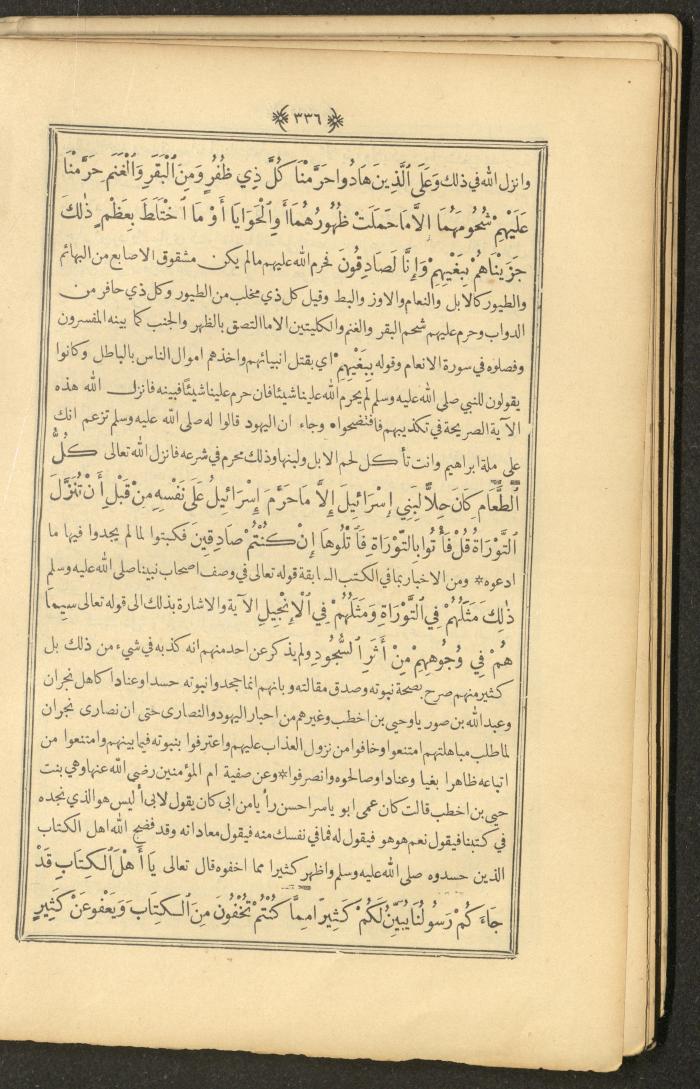 ﴿ ٣٣٦ ﴾
وانزل الله في ذلك وَعَلَى ٱلَّذِينَ هَادُوا حَرَّمْنَا كُلَّ ذِي ظُفُرٍ وَمِنَ ٱلْبَقَرِ وَٱلْغَنَمِ حَرَّمْنَا
عَلَيْهِمْ شُحُومَهُمَا إِلَّا مَا حَمَلَتْ ظُهُورُهُمَا أَوِ ٱلْحَوَايَا أَوْ مَا ٱخْتَلَطَ بِعَظْمٍ ذٰلِكَ
جَزَيْنَاهُمْ بِبَغْيِهِمْ وَإِنَّا لَصَادِقُونَ فحرم الله عليهم مالم يكن مشقوق الاصابع من البهائم
والطيور كالابل والنعام والاوز والبط وقيل كل ذي مخلب من الطيور وكل ذي حافر من
الدواب وحرم عليهم شحم البقر والغنم والكليتين الا ما التصق بالظهر والجنب كما بينه المفسرون
وفصلوه في سورة الانعام وقوله بِبَغْيِهِمْ اي بقتل انبيائهم واخذهم اموال الناس بالباطل وكانوا
يقولون للنبي صلى الله عليه وسلم لم يحرم الله علينا شيئا فان حرم علينا شيئًا فبينه فانزل الله هذه
الآية الصريحة في تكذيبهم فافتضحوا • وجاء ان اليهود قالوا له صلى الله عليه وسلم تزعم انك
على ملة ابراهيم وانت تأكل لحم الابل ولبنها وذلك محرم في شرعه فانزل الله تعالى كُلُّ
ٱلطَّعَامِ كَانَ حِلًّا لِبَنِي إِسْرَائِيلَ إِلَّا مَا حَرَّمَ إِسْرَائِيلُ عَلَى نَفْسِهِ مِنْ قَبْلِ أَنْ تُنَزَّلَ
ٱلتَّوْرَاةُ قُلْ فَأْتُوا بِالتَّوْرَاةِ فَٱتْلُوهَا إِنْ كُنْتُمْ صَادِقِينَ فكبتوا لما لم يجدوا فيها ما
ادعوه * ومن الاخبار بما في الكتب السابقة قوله تعالى في وصف اصحاب نبينا صلى الله عليه وسلم
ذٰلِكَ مَثَلُهُمْ فِي ٱلتَّوْرَاةِ وَمَثَلُهُمْ فِي ٱلْإِنْجِيلِ الآية والاشارة بذلك الى قوله تعالى سِيمَا
هُمْ فِي وُجُوهِهِمْ مِنْ أَثَرِ ٱلسُّجُودِ ولم يذكر عن احد منهم انه كذبه في شيء من ذلك بل
كثير منهم صرح بصحة نبوته وصدق مقالته وبانهم انما جحدوا نبوته حسدا وعنادا كاهل نجران
وعبدالله بن صوريا وحيي بن اخطب وغيرهم من احبار اليهود والنصارى حتى ان نصارى نجران
لما طلب مباهلتهم امتنعوا وخافوا من نزول العذاب عليهم واعترفوا بنبوته فيما بينهم وامتنعوا من
اتباعه ظاهرا بغيا وعنادا وصالحوه وانصرفوا * وعن صفية ام المؤمنين رضي الله عنها وهي بنت
حيي بن اخطب قالت كان عمي ابو ياسر احسن رأيا من ابي كان يقول لابي أليس هو الذي نجده
في كتبنا فيقول نعم هو هو فيقول له فما في نفسك منه فيقول معاداته وقد فضح الله اهل الكتاب
الذين حسدوه صلى الله عليه وسلم واظهر كثيرا مما اخفوه قال تعالى يَا أَهْلَ ٱلْكِتَابِ قَدْ
جَاءَكُمْ رَسُولُنَا يُبَيِّنُ لَكُمْ كَثِيرًا مِمَّا كُنْتُمْ تُخْفُونَ مِنَ ٱلْكِتَابِ وَيَعْفُو عَنْ كَثِيرٍ